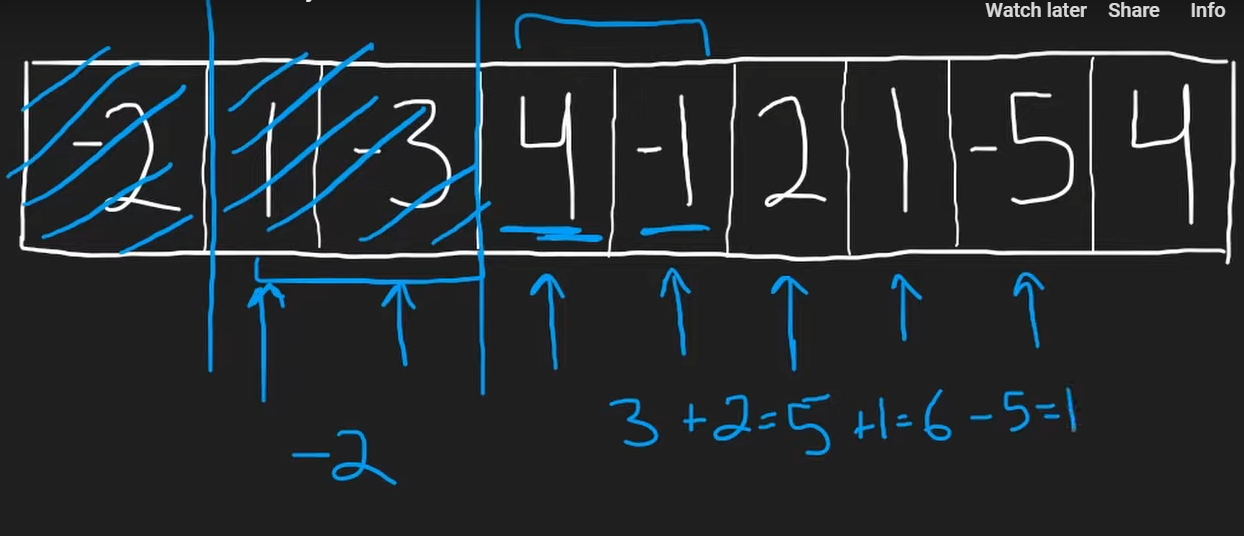 Watch later Share Info
-2 1 -3 4 -1 2 1 -5 4
3 +2=5 +1=6 -5=1
-2